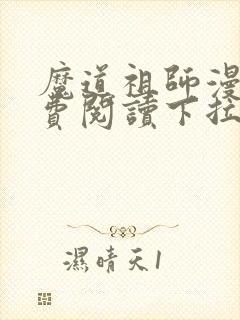 魔道祖師漫
費閱讀下拉
濕晴天1